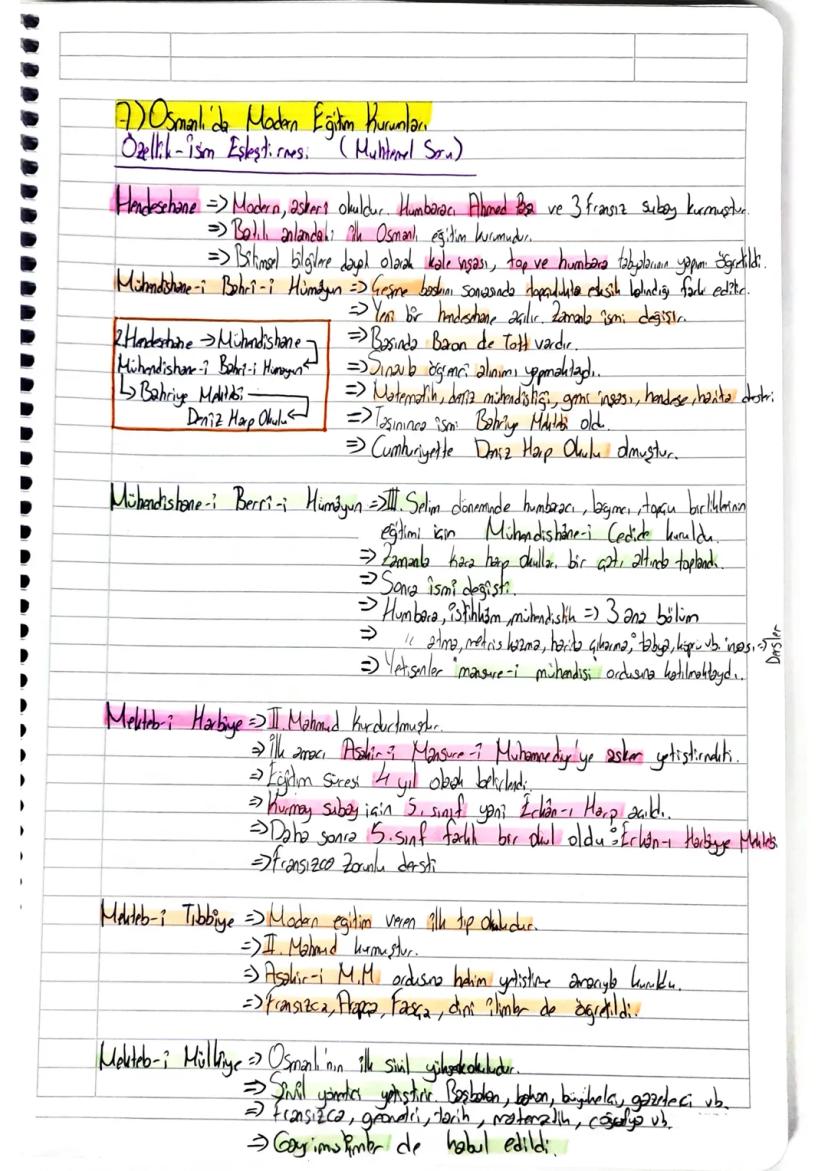 7) Osmanlı'da Modern Eğitim Kurumları
Özellik-İsim Eşleştirmesi (Muhtemel Soru)
Hendesehane => Modern, askeri okuldur. Humbaracı Ahmed Paşa ve 3 fransız subay kurmuştur.
=> Batılı anlamdaki ilk Osmanlı eğitim kurumudur.
=> Bilimsel bilgilere dayalı olarak kale inşası, top ve humbara tabyalarının yapımı öğretildi.
Mühendishane-i Bahri-i Hümâyun => Çeşme baskını sonrasında topçulukta eksik kalındığı fark edilir.
=> Yeni bir hendesehane açılır. Zamanla ismi değişir.
=> Başında Baron de Tott vardır.
=> Sınavla öğrenci alımını yapmaktaydı.
=> Matematik, deniz mühendisliği, gemi inşası, hendese, harita dersleri
=> Taşınınca ismi Bahriye Mektebi oldu.
=> Cumhuriyette Deniz Harp Okulu olmuştur.
2. Hendeshane -> Mühendishane
Mühendishane-i Bahri-i Hümayun
Bahriye Mektebi
Deniz Harp Okulu
Mühendishane-i Berrî-i Hümâyun => III. Selim döneminde humbaracı, lağımcı, topçu birliklerinin
eğitimi için Mühendishâne-i Cedide kuruldu.
=> Zamanla kara harp okulları bir çatı altında toplandı.
=> Sonra ismi değişti.
=> Humbara, istihkâm, mühendislik => 3 ana bölüm
=> " atma, metris kazma, harita çıkarma, tabya, köprü vb. inşası => Dersler
=> Yetişenler "mansure-i mühendisi" ordusuna katılmaktaydı.
Mekteb-i Harbiye => II. Mahmud kurdurtmuştur.
=> İlk amacı Asakir-i Mansure-i Muhammediye'ye asker yetiştirmekti.
=> Eğitim süresi 4 yıl olarak belirlendi.
=> Kurmay subay için 5. sınıf yani Erkân-ı Harp açıldı.
=> Daha sonra 5. sınıf farklı bir okul oldu: Erkân-ı Harbiye Mektebi
=> Fransızca Zorunlu dersti
Mekteb-i Tıbbiye => Modern eğitim veren ilk tıp okuludur.
=> II. Mahmud kurmuştur.
=> Asakir-i M.M ordusuna hekim yetiştirme amacıyla kuruldu.
=> Fransızca, Arapça, Farsça, dini ilimler de öğretildi.
Mekteb-i Mülkiye => Osmanlı'nın ilk sivil yüksekokuludur.
=> Sivil yönetici yetiştirir. Başbakan, bakan, büyükelçi, gazeteci vb.
=> Fransızca, geometri, tarih, matematik, coğrafya vb.
=> Gayrimüslimler de kabul edildi.